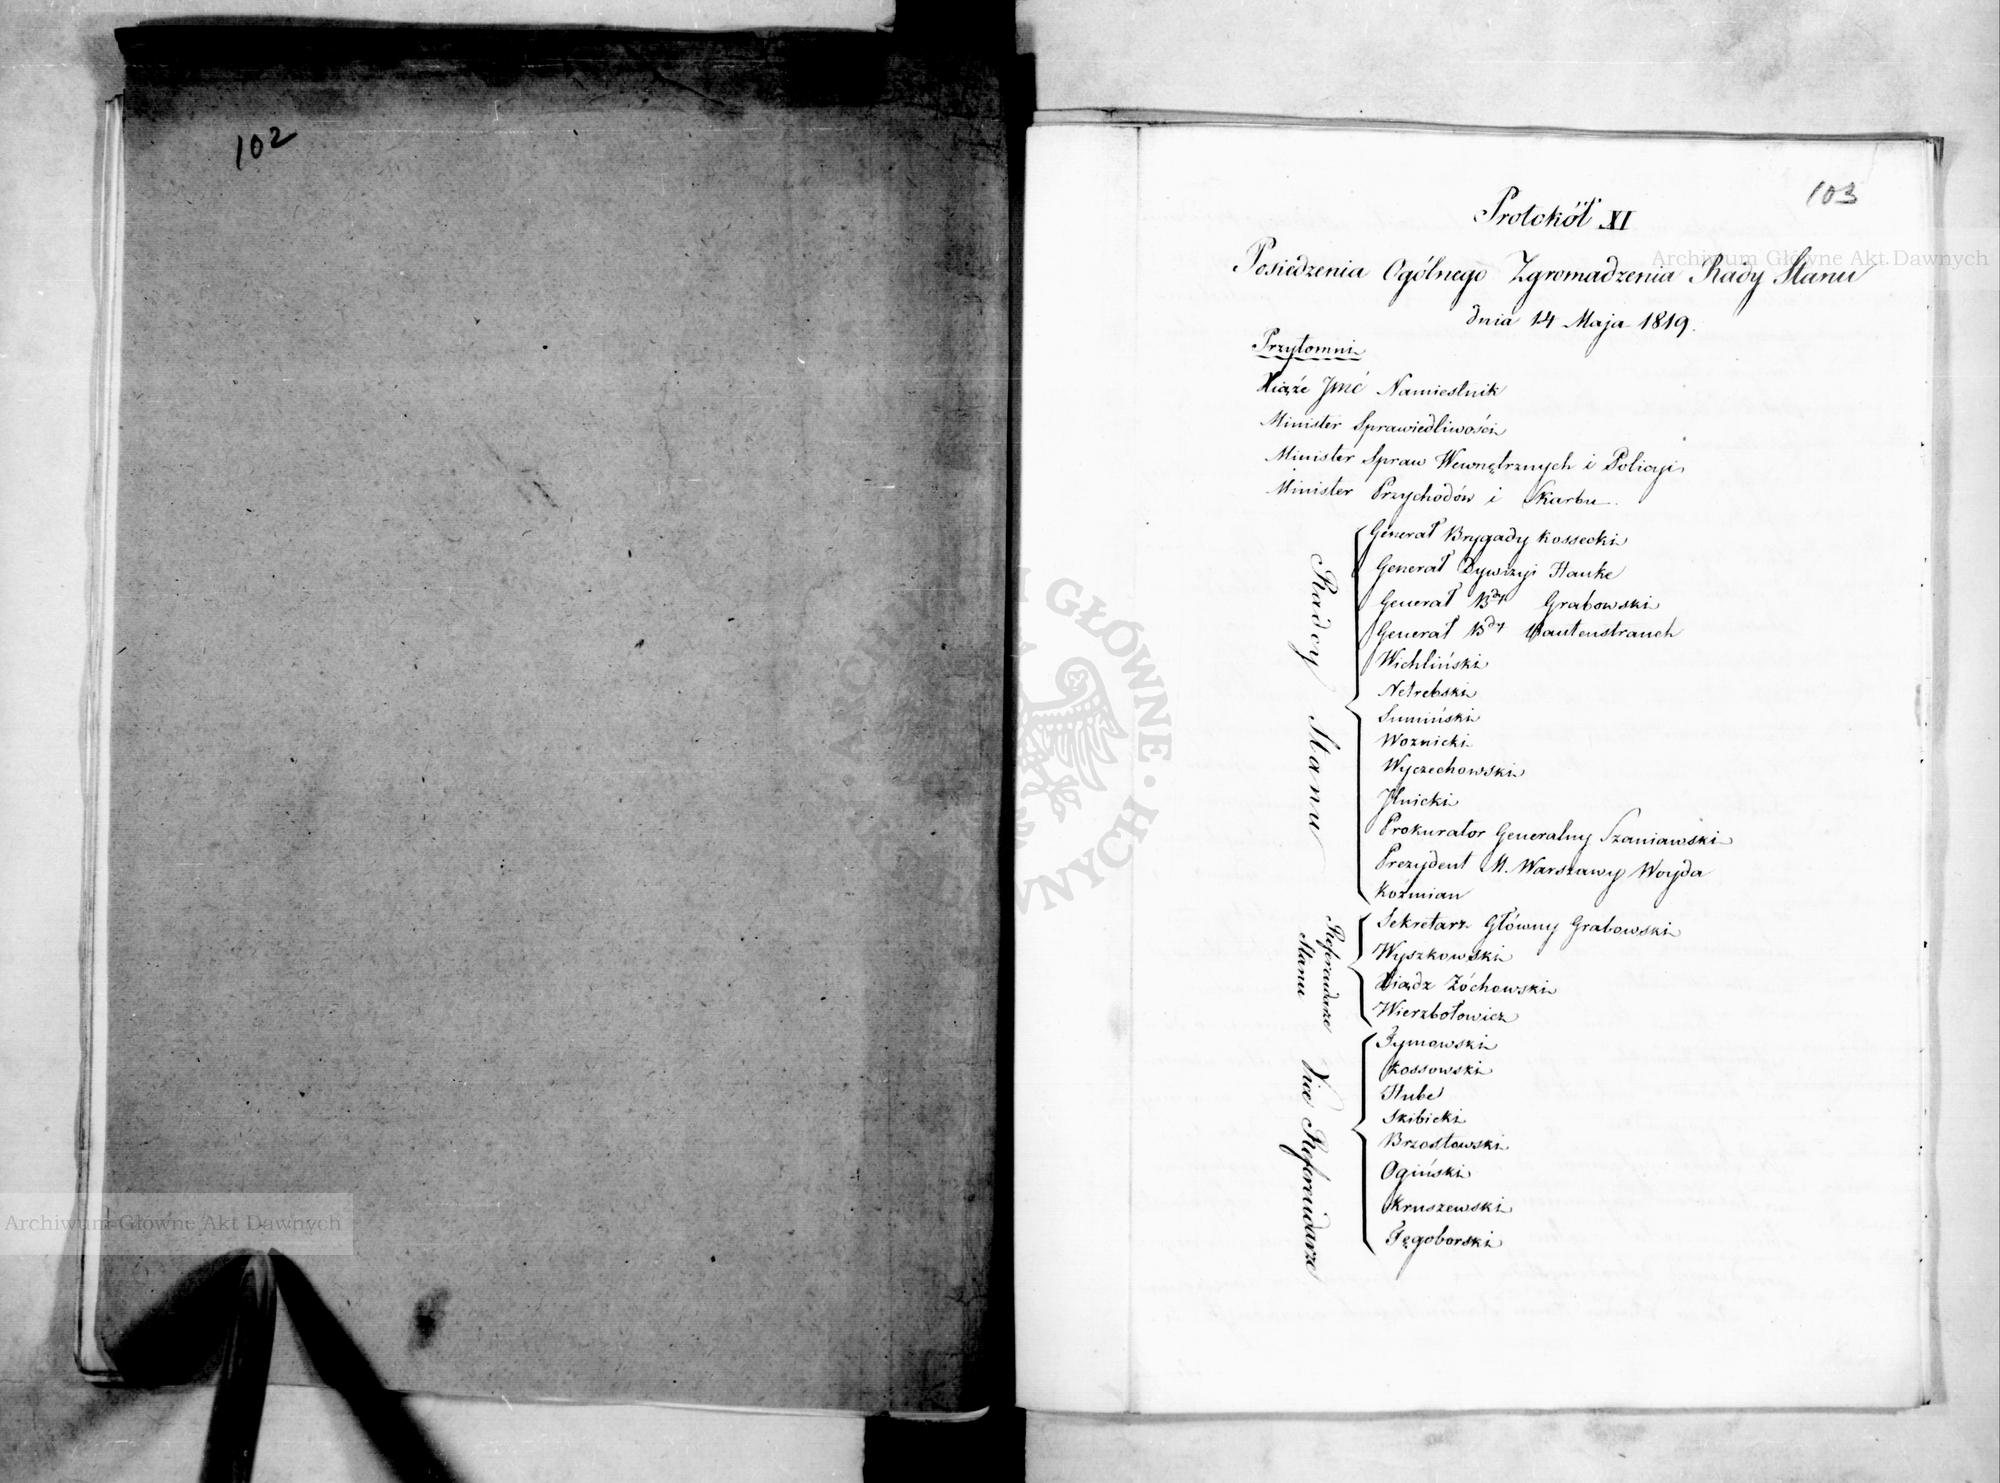 102
103
Protokół XI
Posiedzenia Ogólnego Zgromadzenia Rady Stanu
dnia 14 Maja 1819.
Przytomni
Xiąże Jmć Namiestnik
Minister Sprawiedliwości
Minister Spraw Wewnętrznych i Policyi
Minister Przychodów i Skarbu.
Radcy Stanu
Generał Brygady Kossecki
Generał Dywizyi Hauke
Generał Bdy Grabowski
Generał Bdy Rautenstrauch
Wichliński
Netrebski
Sumiński
Woznicki
Wyczechowski
Jlnicki
Prokurator Generalny Szaniawski
Prezydent M. Warszawy Woyda
Koźmian
Referendarze Stanu
Sekretarz Główny Grabowski
Wyszkowski
Xiądz Żóchowski
Wierzbołowicz
Vice Referendarze
Tymowski
Kossowski
Hube
Skibicki
Brzostowski
Ogiński
Kruszewski
Tęgoborski
Archiwum Główne Akt Dawnych
Archiwum Główne Akt Dawnych
ARCHIWUM GŁÓWNE AKT DAWNYCH